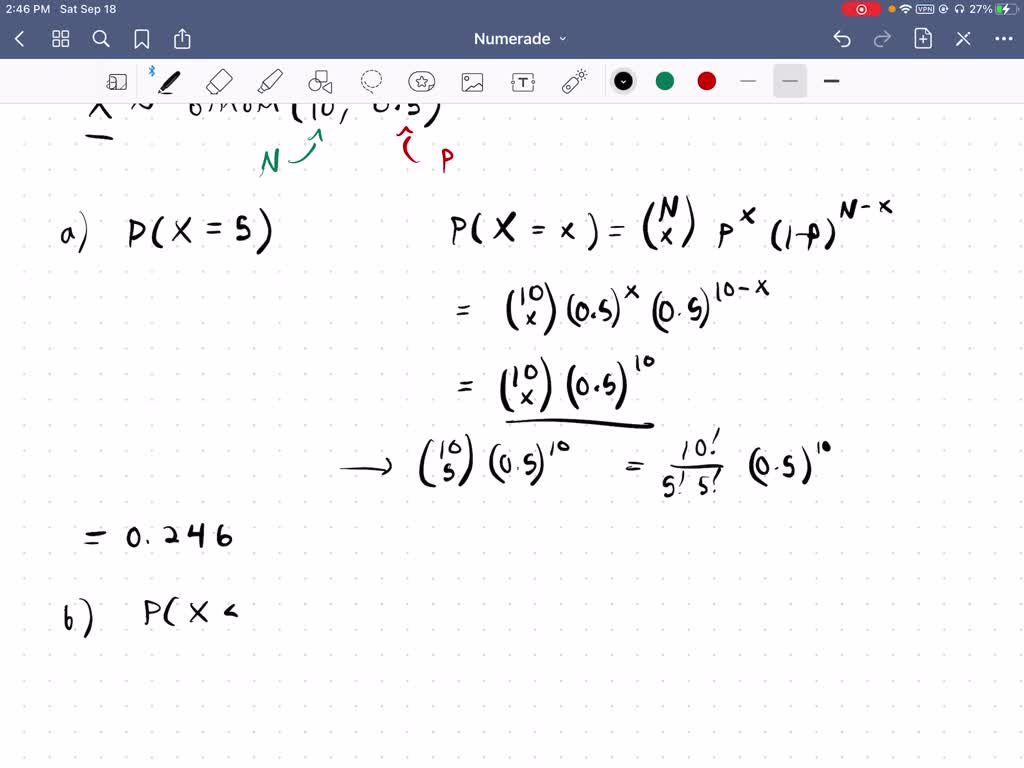 2:46 PM Sat Sep 18 VPN 27%
Numerade
X ~ Binom(10, 0.5)
N P
a) P(X = 5) P(X = x) = (N x) P^x (1-P)^{N-x}
= (10 x) (0.5)^x (0.5)^{10-x}
= (10 x) (0.5)^{10}
→ (10 5) (0.5)^{10} = 10!/5! 5! (0.5)^{10}
= 0.246
b) P(X <